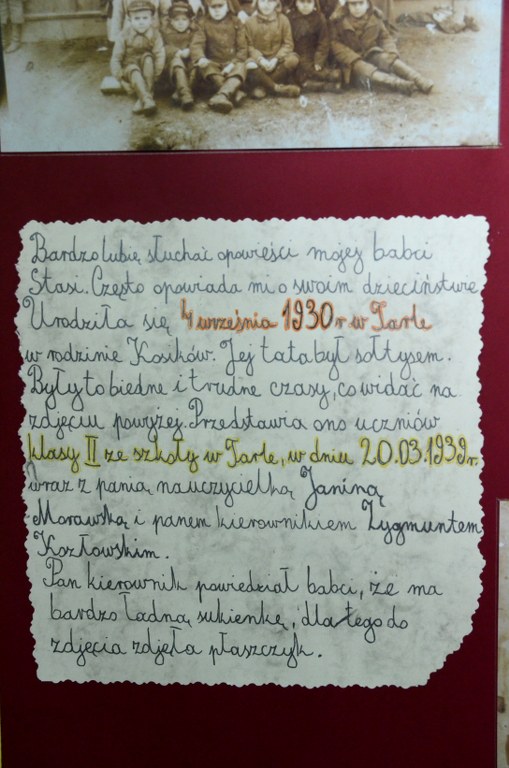 Bardzo lubię słuchać opowieści mojej babci
Stasi. Często opowiada mi o swoim dzieciństwie
Urodziła się 4 września 1930 r w Tarle
w rodzinie Kosików. Jej tata był sołtysem.
Były to biedne i trudne czasy, co widać na
zdjęciu powyżej. Przedstawia ono uczniów
klasy II ze szkoły w Tarle, w dniu 20.03.1939r.
wraz z panią nauczycielką Janiną
Morawską i panem kierownikiem Zygmuntem
Kozłowskim.
Pan kierownik powiedział babci, że ma
bardzo ładną sukienkę, dlatego do
zdjęcia zdjęła płaszczyk.